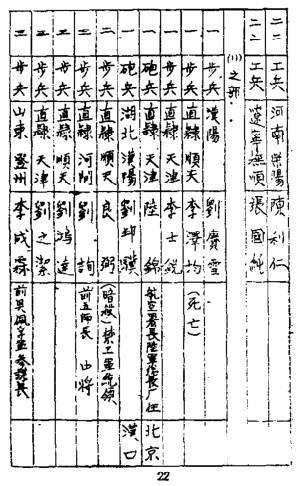 二二 工兵 河南滎陽 陳利仁
二二 工兵 遼寧撫順 張國純
(川)之部
一 步兵 漢陽 劉賡雲
一 步兵 直隸順天 李澤均 (死亡)
一 砲兵 直隸天津 李士銳
一 砲兵 直隸天津 陸錦 航空署長陸軍次長廠任 北京
一 砲兵 湖北漢陽 劉邦驥 漢口
二 步兵 直隸順天 良弼 (暗殺)禁衛軍統領
三 步兵 直隸河間 劉詢 前五師長 中將
三 步兵 直隸順天 劉鴻逵
三 步兵 直隸天津 劉之潔
三 步兵 山東登州 李成霖 前吳佩孚軍參謀長
22